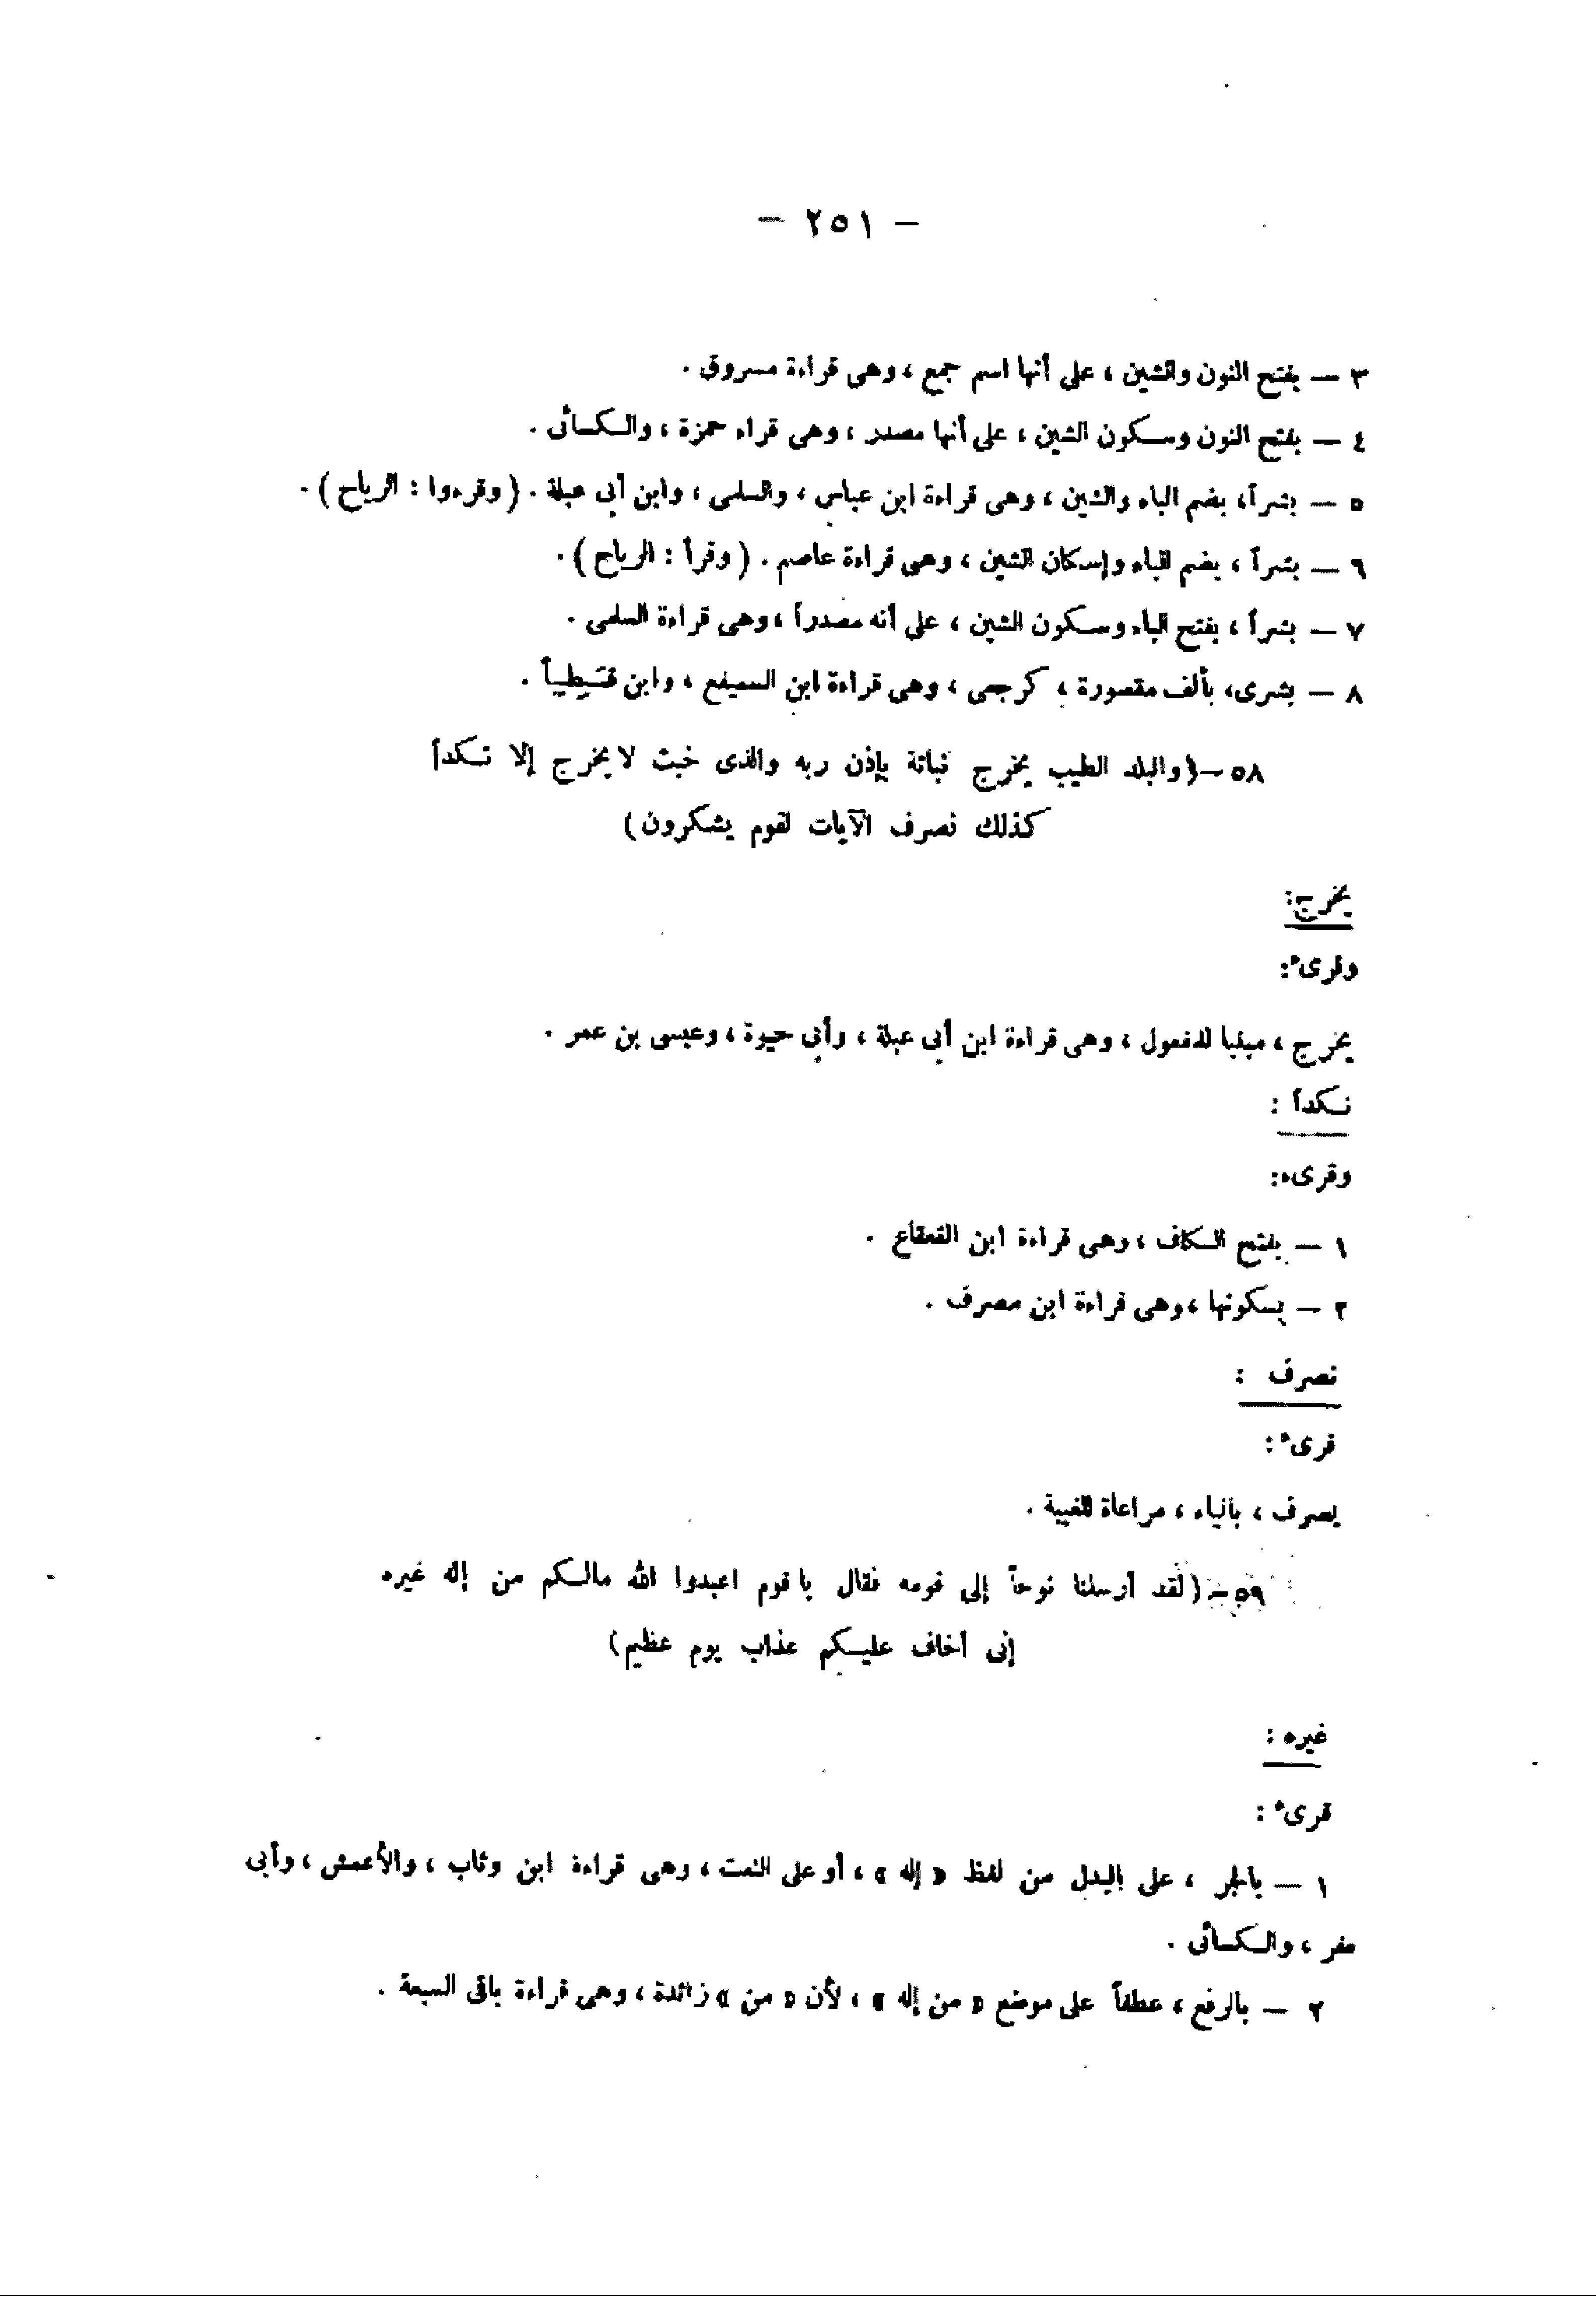 — ٢٥١ —
٣ — بفتح النون والشين ، على أنها اسم جمع ، وهى قراءة مسروق .
٤ — بفتح النون وسكون الشين ، على أنها مصدر ، وهى قراء حمزة ، والكسائى .
٥ — بشراً، بضم الباء والشين ، وهى قراءة ابن عباس ، والسلمى ، وابن أبى عبلة . (وقرءوا : الرياح) .
٦ — بشراً ، بضم الباء وإسكان الشين ، وهى قراءة عاصم . (وقرأ : الرياح) .
٧ — بشراً ، بفتح الباء وسكون الشين ، على أنه مصدراً ، وهى قراءة السلمى .
٨ — بشرى، بألف مقصورة ، كرجمى ، وهى قراءة ابن السميفع ، وابن قشيطيباً .
٥٨ — (والبلد الطيب يخرج نباتة بإذن ربه والذى خبث لا يخرج إلا نكداً
كذلك نصرف الآيات لقوم يشكرون)
يخرج:
وقرىء:
يخرج ، مبنيا للمفعول ، وهى قراءة ابن أبى عبلة ، وأبى حيوة ، وعيسى بن عمر .
نكداً :
وقرىء:
١ — بفتح الكاف ، وهى قراءة ابن القعقاع .
٢ — بسكونها ، وهى قراءة ابن مصرف .
نصرف :
قرىء :
يصرف ، بالياء ، مراعاة للغيبة .
٥٩ — (لقد أرسلنا نوحاً إلى قومه فقال يا قوم اعبدوا الله مالكم من إله غيره
إنى أخاف عليكم عذاب يوم عظيم)
غيره :
قرىء :
١ — بالجر ، على البدل من لفظ « إله » ، أو على النعت ، وهى قراءة ابن وثاب ، والأعمش ، وأبى
جعفر ، والكسائى .
٢ — بالرفع ، عطفاً على موضع « من إله » ، لأن « من » زائدة ، وهى قراءة باقى السبعة .